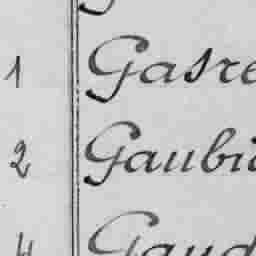 1 Gasre
2 Gaubi
4 Gaud